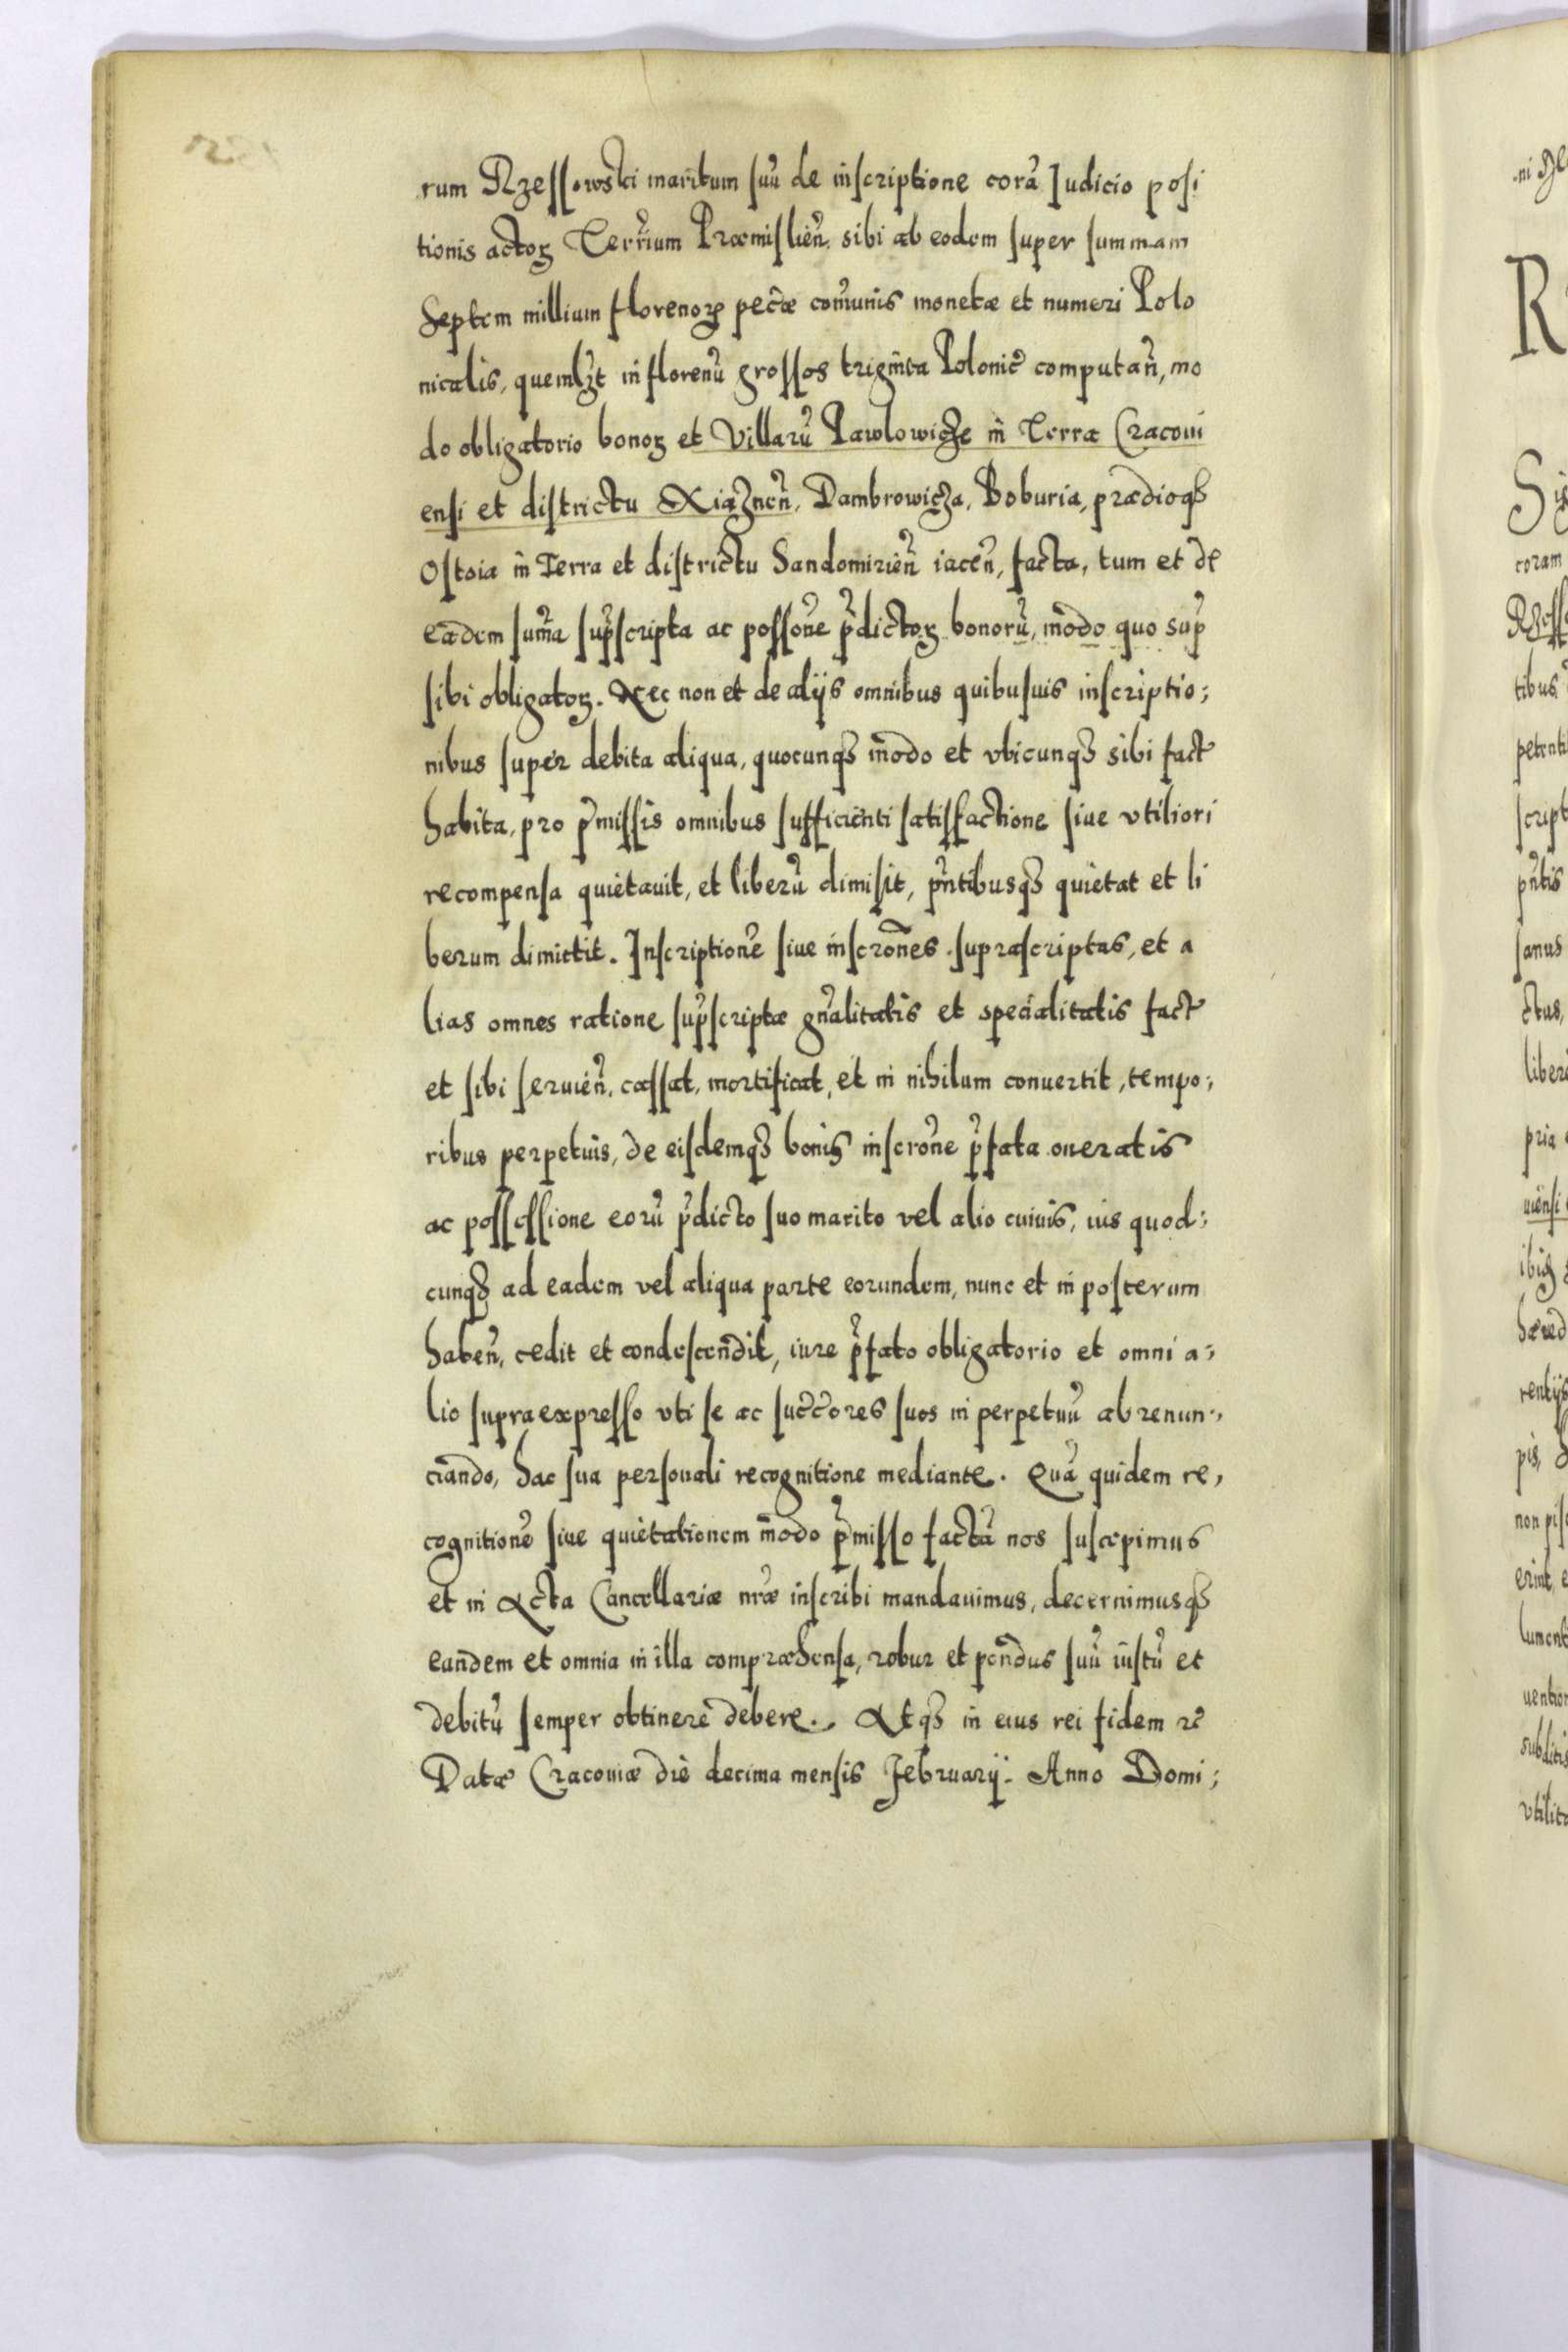 rum Rzessowski maritum suũ de inscriptione corã Iudicio posi
tionis actoꝝ Terrium Præmislieñ. sibi ab eodem super summam
Septem millium florenoꝝ pecæ comunis monetæ et numeri Polo
nicalis, quemlꝫt in florenũ grossos trigĩta Polonic̃ computañ, mo
do obligatorio bonoꝝ et Villarũ Pawlowicze in Terra Cracoui
ensi et districtu Xiąznen̄, Dambrowicza, Boburia, prædioqꝫ
Ostoia in Terra et districtu Sandomirieñ iaceñ, facta, tum et de
eadem sum̃a sup̃scripta ac possoñe p̃dictoꝝ bonorũ, modo quo sup̃
sibi obligatoꝝ. Nec non et de alijs omnibus quibusuis inscriptio;
nibus super debita aliqua, quocunqꝫ modo et vbicunqꝫ sibi fact
habita, pro p̃missis omnibus sufficienti satisfactione siue vtiliori
recompensa quietauit, et liberũ dimisit, pñtibusqꝫ quietat et li
berum dimittit. Inscriptionẽ siue inscroñes suprascriptas, et a
lias omnes ratione sup̃scriptæ gñalitatis et specialitatis fact
et sibi seruieñ. cassat, mortificat, et in nihilum conuertit, tempo;
ribus perpetuis, de eisdemqꝫ bonis inscroñe p̃fata oneratis
ac possessione eorũ p̃dicto suo marito vel alio cuiuis, ius quod;
cunqꝫ ad eadem vel aliqua parte eorundem, nunc et in posterum
habeñ, cedit et condescendit, iure p̃fato obligatorio et omni a;
lio supraexpresso vti se ac succ̃ores suos in perpetuũ abrenun;
ciando, hac sua personali recognitione mediante. Quã quidem re,
cognitionẽ siue quietationem modo p̃misso factã nos suscepimus
et in Acta Cancellariæ nr̃æ inscribi mandauimus, decernimusqꝫ
eandem et omnia in illa compræhensa, robur et pondus suũ iustũ et
debitũ semper obtinere debere. Atqꝫ in eius rei fidem rc̃
Datæ Cracouiæ die decima mensis Februarij. Anno Domi;